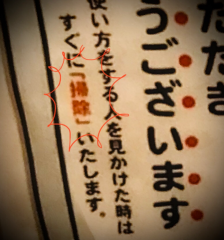 ただき
うございます
使い方をする人を見かけた時は
すぐに「掃除」いたします。